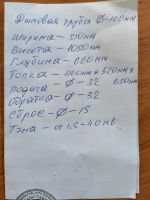 Дымовая труба Ф-160мм
Ширина - 510мм
Высота - 1050мм
Глубина - 600мм
Топка - 400мм х 520мм х
650мм
Подача Ф - 32
Обратка - Ф - 32
Сброс - Ф - 15
Тэна - от 1.5 - 4.0 кв